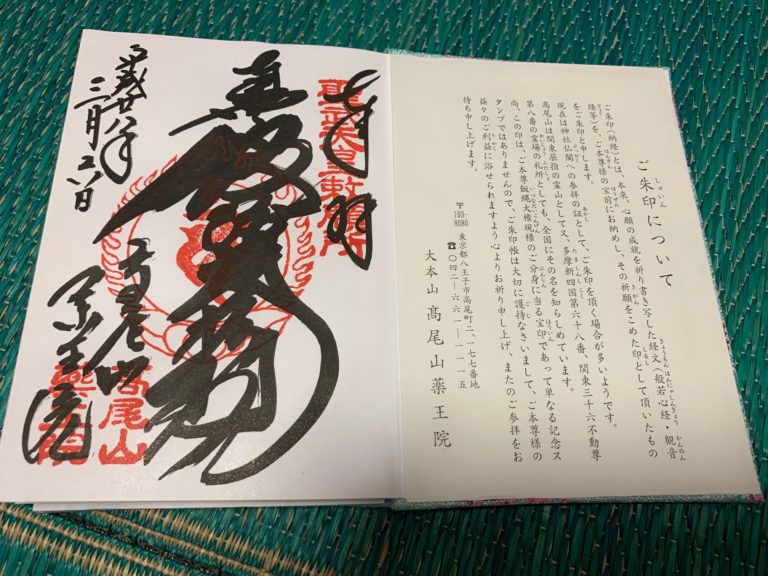 ご朱印について
しゅいん
ご朱印（納経）とは、本来、心願の成就を祈り書き写した経文（般若心経・観音
経等）を、ご本尊様の宝前にお納めし、その祈願をこめた印として頂いたもの
をご朱印と申します。
現在は神社仏閣への参拝の証として、ご朱印を頂く場合が多いようです。
高尾山は関東屈指の霊山として又、多摩新四国第六十八番、関東三十六不動尊
第八番の霊場の札所としても、全国にその名を知らしめています。
尚、この印は、ご本尊飯縄大権現様のご分身に当る宝印であって単なる記念ス
タンプではありませんので、ご朱印帳は大切に護持なさいまして、ご本尊様の
益々のご利益に浴せられますよう心よりお祈り申し上げ、またのご参拝をお
待ち申し上げます。
〒193-8686 東京都八王子市高尾町二、一七七番地
☎〇四二ー六六一ー一一一五
大本山 髙尾山薬王院
奉拝
聖武天皇勅願所
飯縄大権現
高尾山
薬王院
高尾山
薬王院
平成廿八年
三月二八日